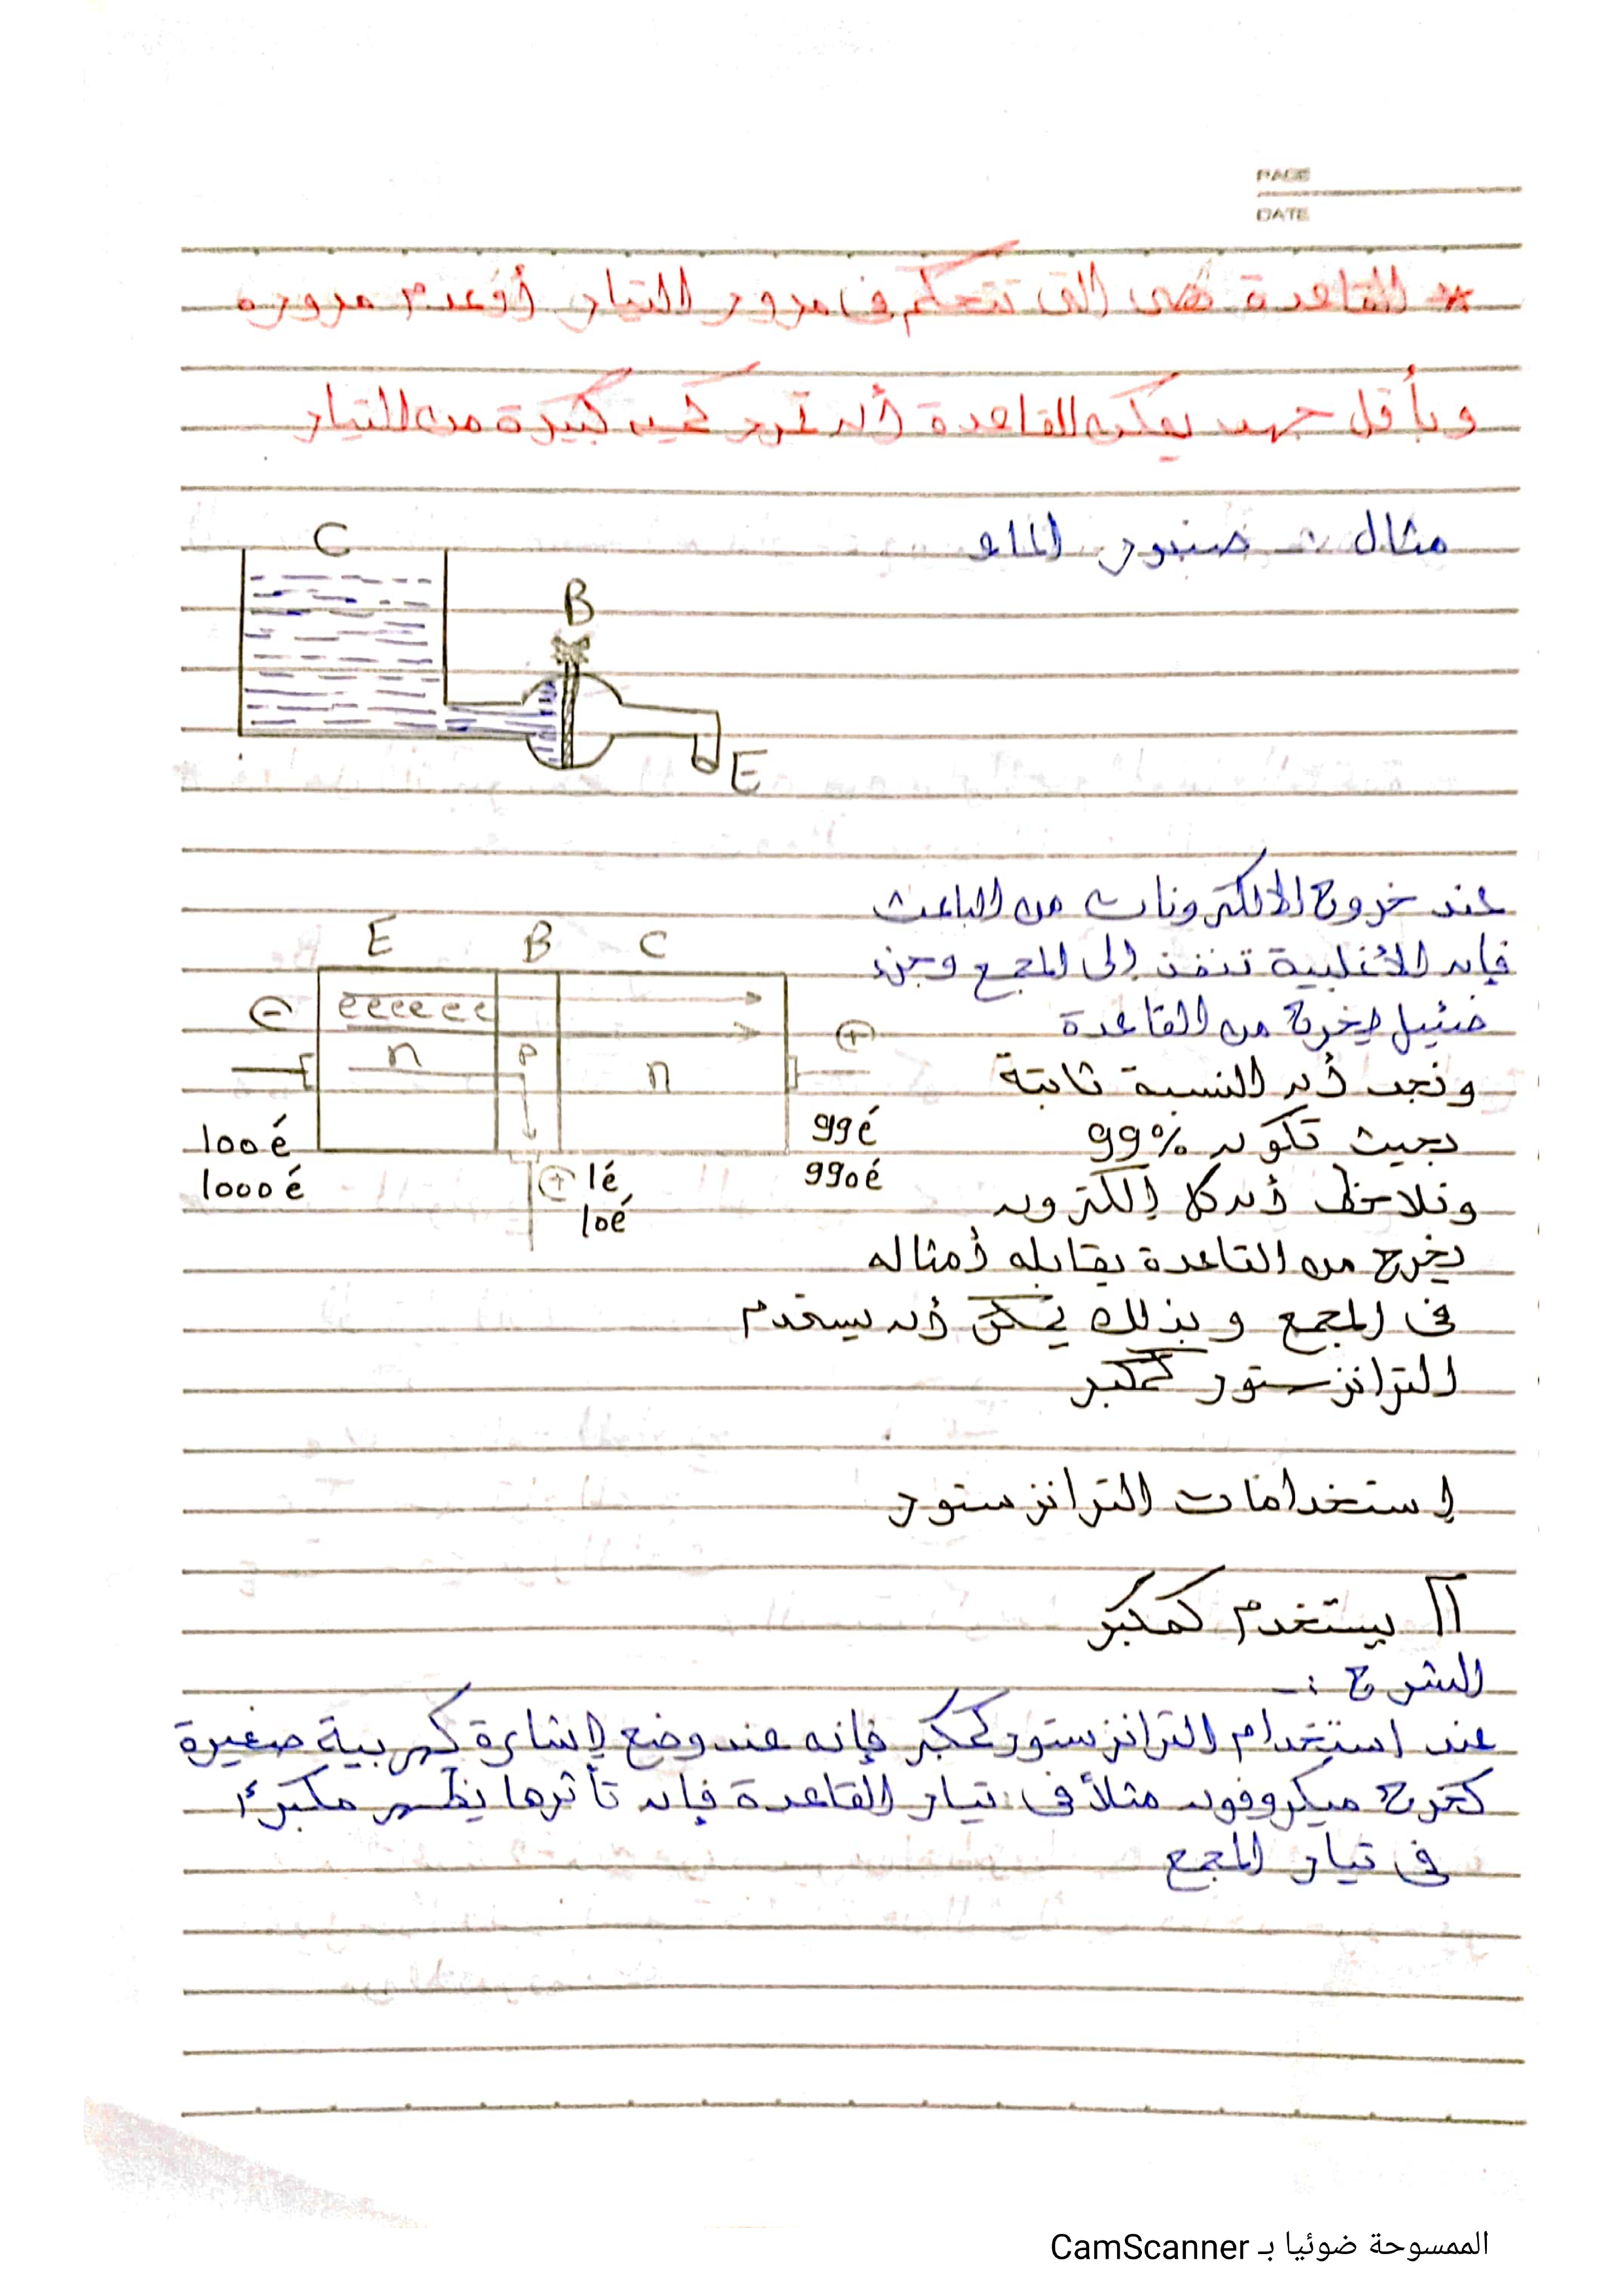 PAGE
DATE
* القاعدة هى التى تتحكم فى مرور التيار أو عدم مروره
وبأقل جهد يمكن للقاعدة أن تمرر كميه كبيرة من التيار
مثال :- صنبور الماء
C
B
E
عند خروج الالكترونات من الباعث
فإن الأغلبية تنفذ إلى المجمع وجزء
ضئيل يخرج من القاعدة
ونجد أن النسبة ثابتة
بحيث تكون 99%
ونلاحظ أن كل إلكترون
يخرج من القاعدة يقابله أمثاله
فى المجمع وبذلك يمكن أن يستخدم
الترانزستور كمكبر
E B C
⊖ eeeeee ⊕
n P n
100é 99é
1000é 990é
⊕ 1é
10é
إستخدامات الترانزستور
1 يستخدم كمكبر
الشرح :-
عند استخدام الترانزستور كمكبر فإنه عند وضع إشارة كهربية صغيرة
كخرج ميكروفون مثلاً فى تيار القاعدة فإن تأثرها يظهر مكبرًا
فى تيار المجمع
الممسوحة ضوئيا بـ CamScanner